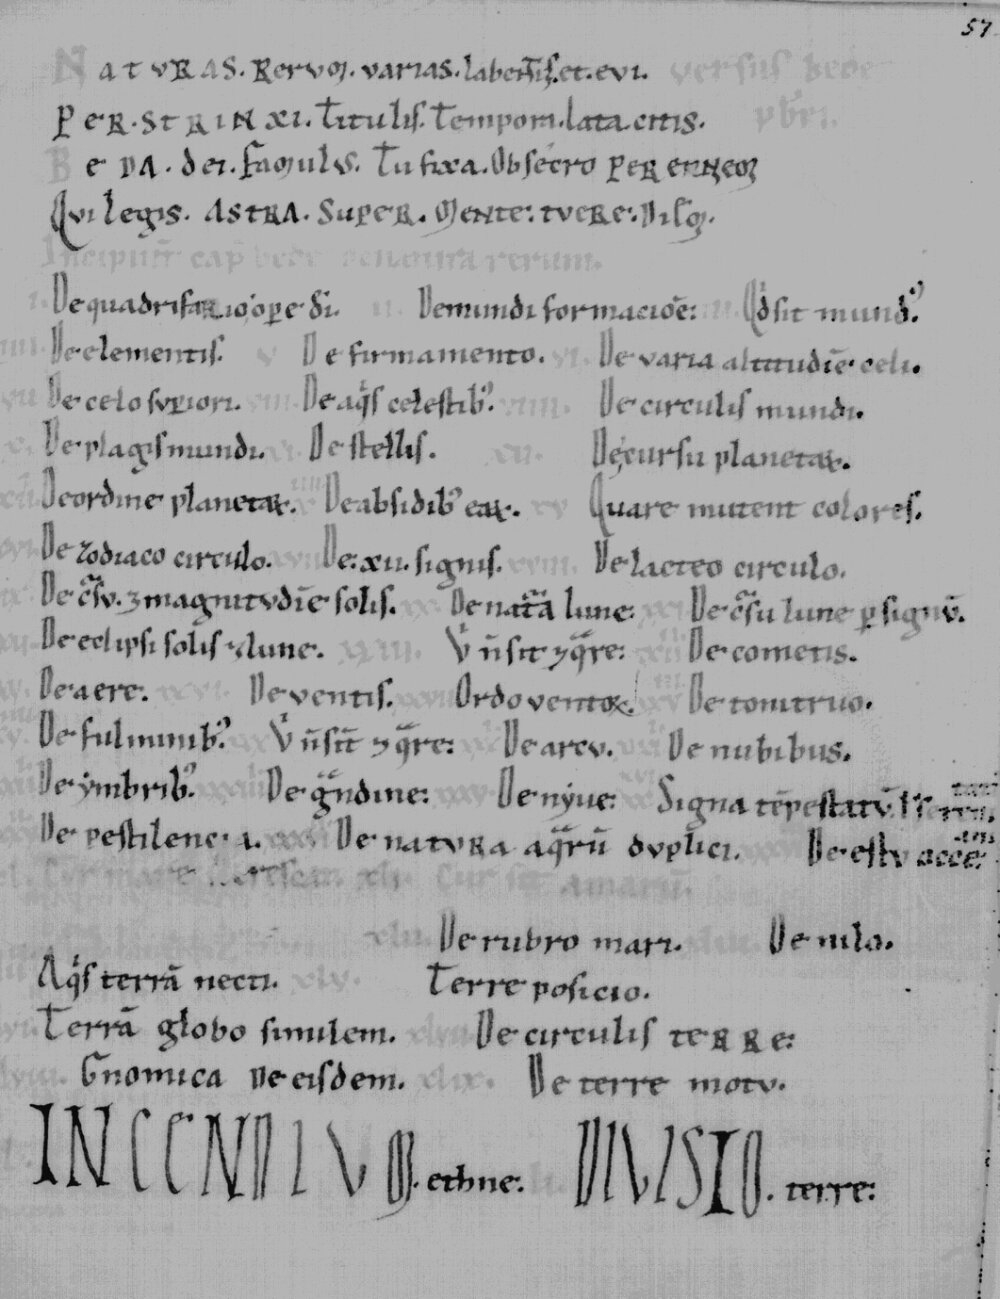 57
NATURAS. Rerum. varias. labentis. et. evi. versus bede
PERSTRINXI. Titulis. Tempora. lata. citis. pbri.
BEDA. dei. famulus. Tu fixa. Obsecro perennem
Qui legis. ASTRA. Super. Mente: tuere: diem.
Incipiunt cap bede de natura rerum.
De quadrifario opere di. De mundi formacioē: Qd sit mund᾽.
De elementis. v De firmamento. vi. De varia altitudiē celi.
De celo supiori. viii. De aqis celestib᾽. viiii. De circulis mundi.
De plagis mundi. De stellis. xii. De cursu planetaꝝ.
De ordine planetaꝝ. De absidib᾽ eaꝝ. xv Quare mutent colores.
De zodiaco circulo. xvii De xii. signis. xviii. De lacteo circulo.
De c̄su. ⁊ magnitudiē solis. xx De nat̄a lune: xxi De c̄su lune ꝑ signū.
De eclipsi solis ⁊ lune. xxiii. Vi ñ sit ⁊ qre: De cometis.
De aere. xxvi. De ventis. xxvii Ordo ventoꝝ. De tonitruo.
De fulminib᾽. Vi ñ sit̄ ⁊ qre: De arcu. De nubibus.
De ymbrib᾽. De gndine: xxxv De nyue: Signa tēpestatū
De pestilencia. De natura aqrū duplici. De estu acce
Cur mare crescat. xli. Cur sit amarū.
xlii. De rubro mari. De nilo.
Aqis terrā necti. xlv. Terre posicio.
Terrā globo similem. xlvii. De circulis terre:
xlviii. Gnomica de eisdem. xlix. De terre motu.
INCENDIUM. ethne. li. DIVISIO. terre: